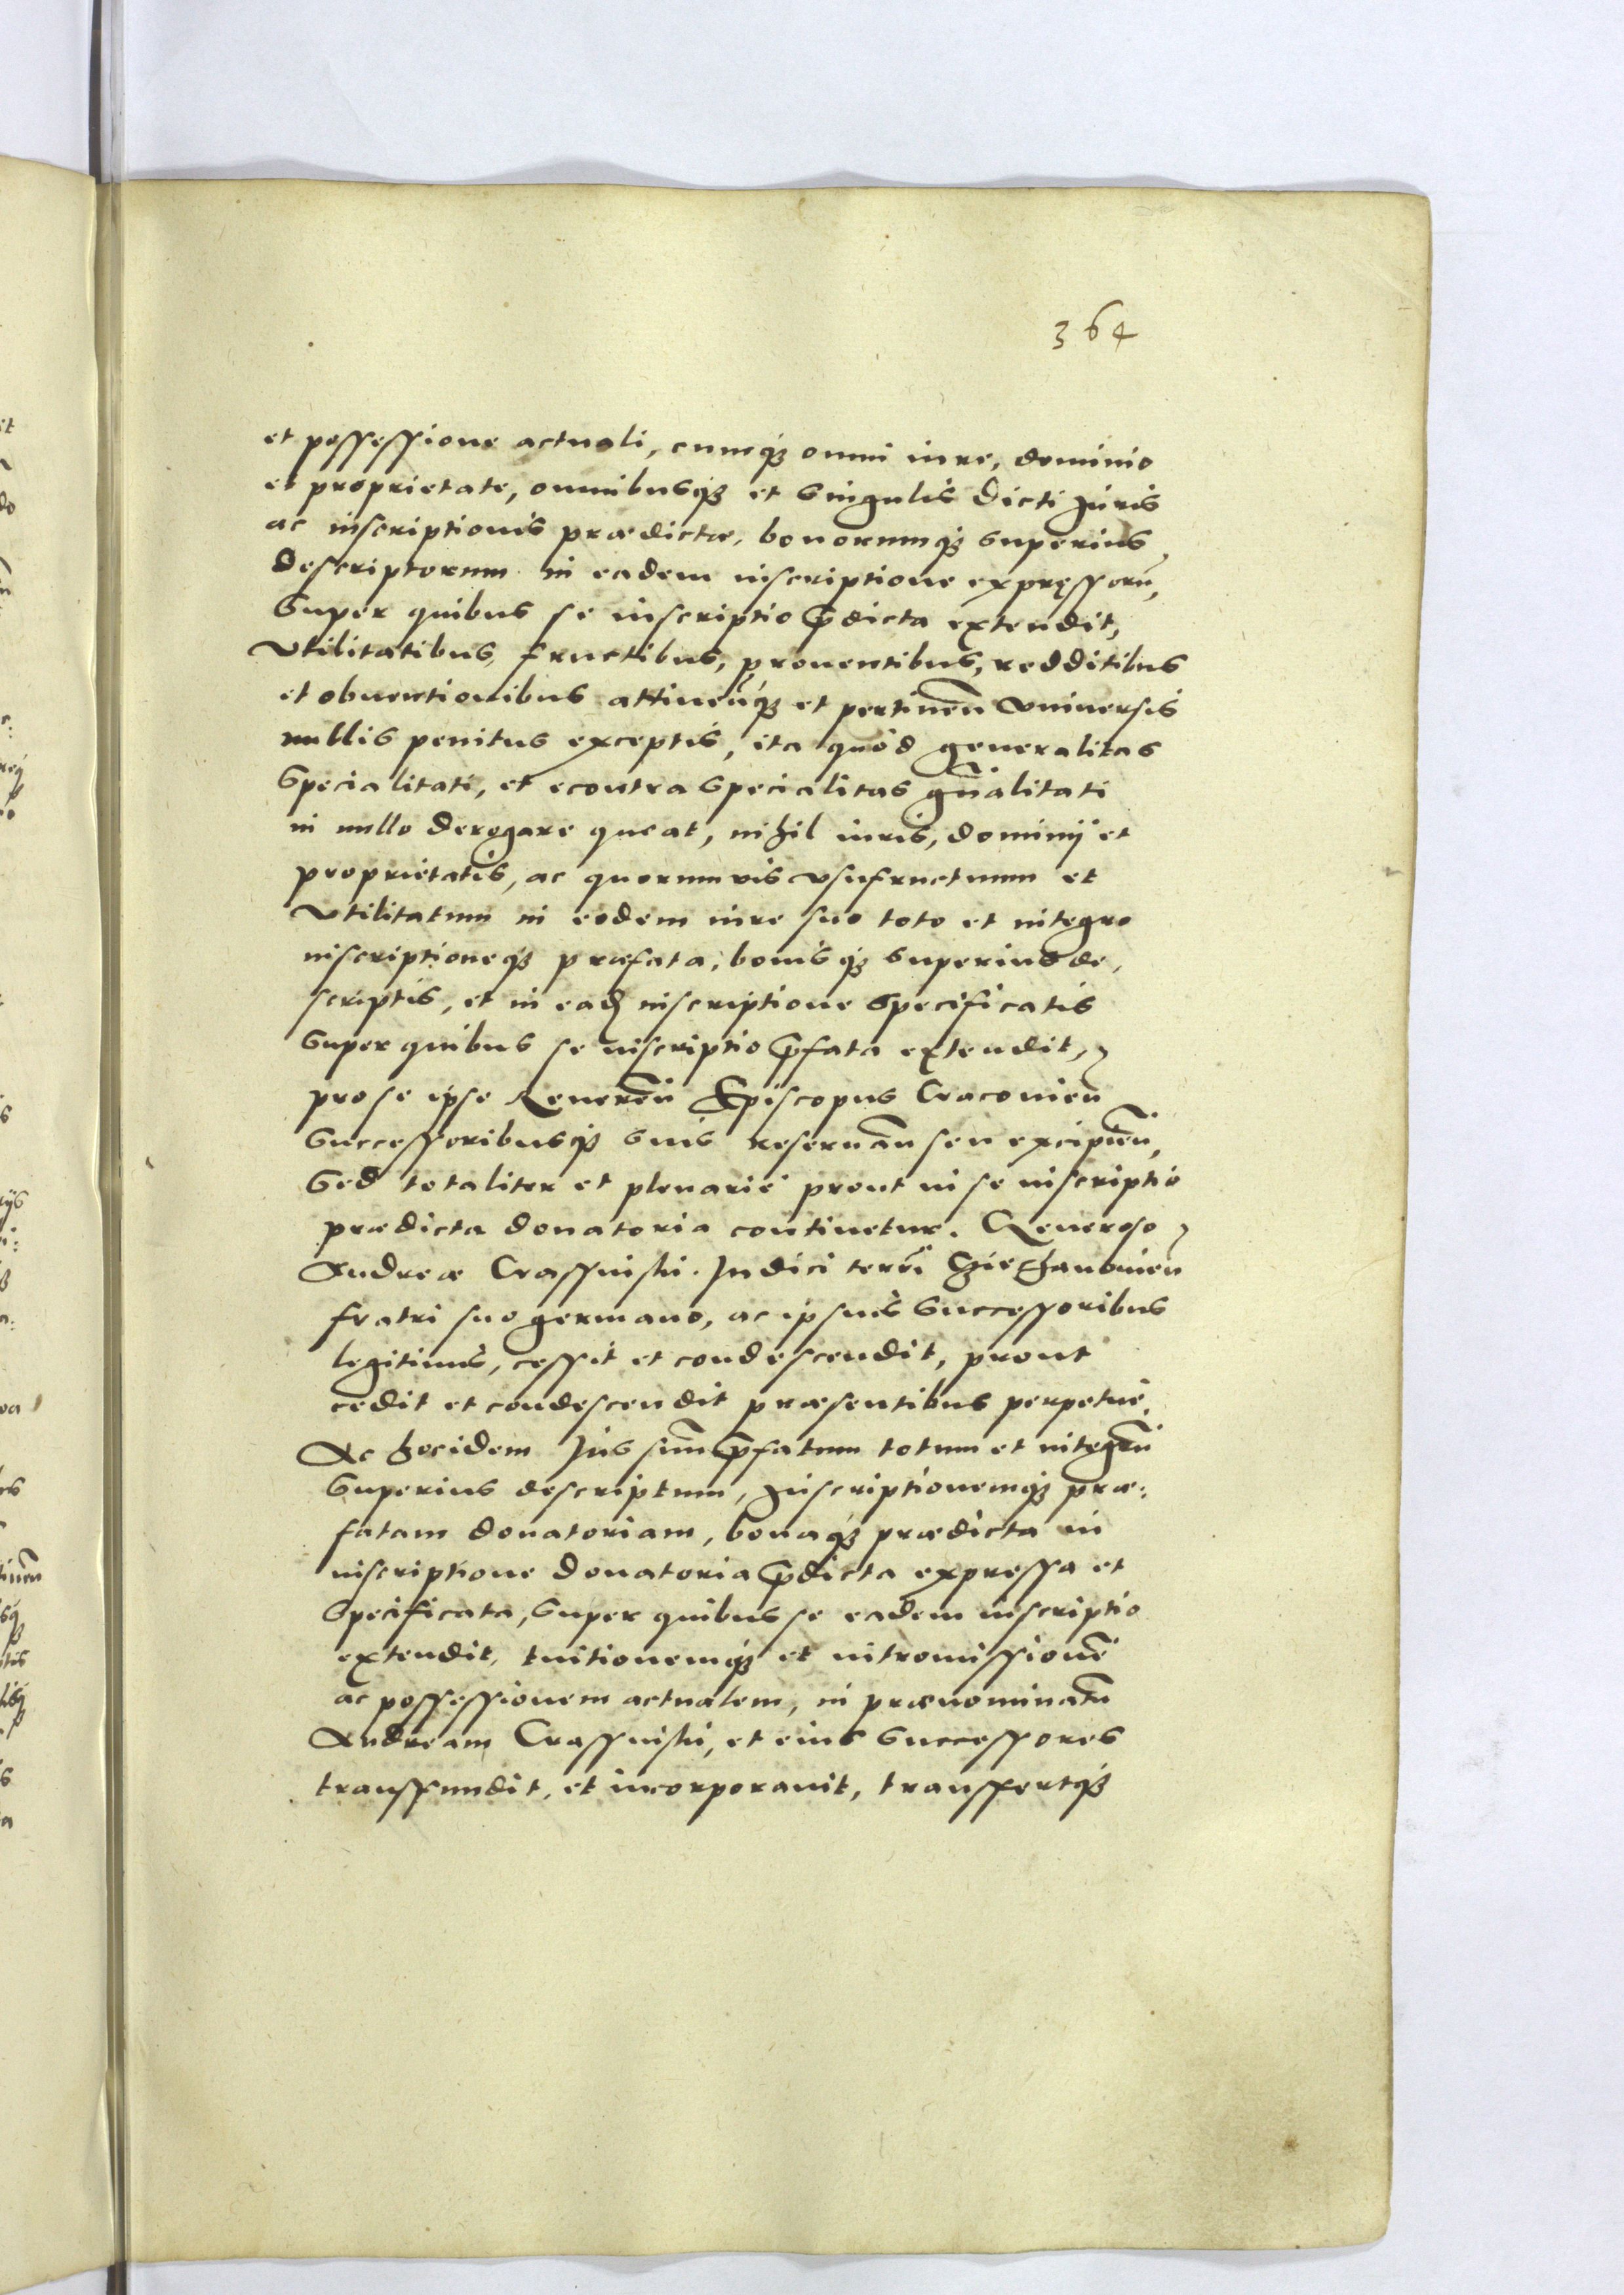 364
et possessione actuali, cumq₃ omni iure, dominio
et proprietate, omnibusq₃ et singulis dicti Juris
ac inscriptionis prædictæ, bonorumq₃ superius
descriptorum in eadem inscriptione expręssorū,
Super quibus se inscriptio p̄dicta extendit,
vtilitatibus, fructibus, prouentibus, redditibus
et obuentionibus attineñq₃ et pertineñ vniuersis
nullis penitus exceptis, ita quòd generalitas
Specialitati, et econtra specialitas gñalitati
in nullo derogare queat, nihil iuris, dominij et
proprietatis, ac quorumuis vsufructuum et
vtilitatum in eodem iure suo toto et integro
inscriptioneq₃ præfata, bonisq₃ superius de,
scriptis, et in ead₃ inscriptione specificatis
Super quibus se inscriptio p̄fata extendit,
pro se ipse Reuereñ Episcopus Cracouieñ
Successoribusq₃ suis reseruañ seu excipieñ,
Sed totaliter et plenariè prout in se inscriptio
prædicta donatoria continetur. Generoso
Andreæ Crassinski. Judici terrī Cziechanouieñ
fratri suo germano, ac ipsius successoribus
legitimis, cessit et condescendit, prout
cedit et condescendit præsentibus perpetuè,
Ac hocidem Jus suū p̄fatum totum et integrū
Superius descriptum, Inscriptionemq₃ præ:
fatam donatoriam, bonaq₃ prædicta in
inscriptione donatoria p̄dicta expressa et
Specificata, super quibus se eadem inscriptio
extendit, tuitionemq₃ et intromissionē
ac possessionem actualem, in prænominatū
Andream Crassinski, et eius successores
transfundit, et incorporauit, transfertq₃